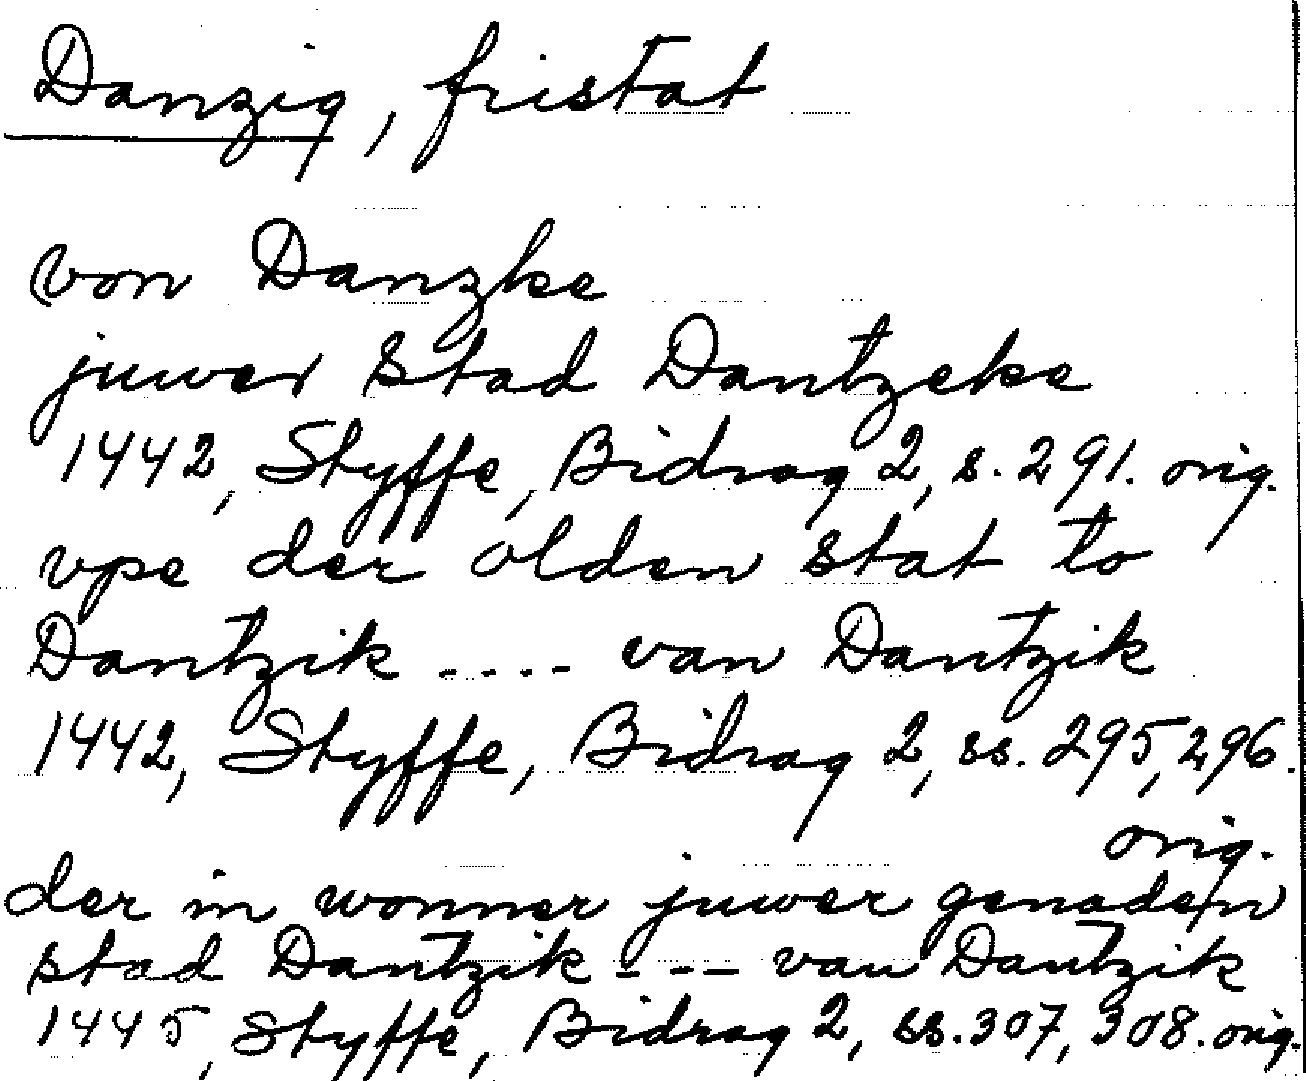 Danzig, fristat
von Danzke
juwer stad Dantzeke
1442, Styffe, Bidrag 2, s. 291. orig.
vpe der olden stat to
Dantzik .... van Dantzik
1442, Styffe, Bidrag 2, ss. 295, 296.
orig.
der in wonner juwer genaden
stad Dantzik - - - van Dantzik
1445, Styffe, Bidrag 2, ss. 307, 308. orig.